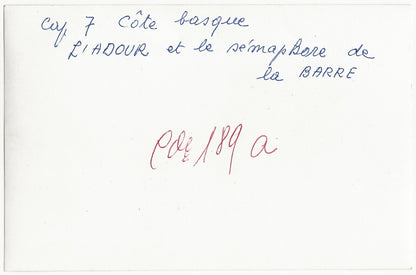 Cap. 7 Côte basque
L'ADOUR et le sémaphore de
la BARRE
Cde 189 a